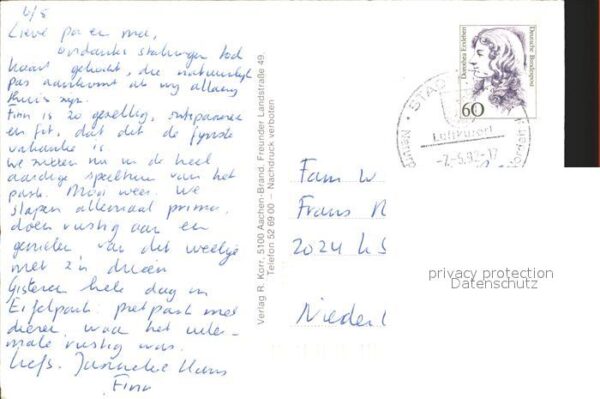 6/5
Lieve pa en ma,
ondanks stakingen toch
kaart gekocht, die natuurlijk
pas aankomt als wij allang
thuis zijn.
Finn is zo gezellig, ontspannen
en fit, dat dit de fijnste
vakantie is.
We zitten nu in de heel
aardige speeltuin van het
park. Mooi weer. We
slapen allemaal prima,
doen rustig aan en
genieten van dit weekje
met z'n drieën
Gisteren hele dag in
Eifelpark: pretpark met
dieren, waar het hele-
male rustig was.
Liefs. Janneke Hans
Finn
Verlag R. Korr, 5100 Aachen-Brand, Freunder Landstraße 49,
Telefon 52 69 00 – Nachdruck verboten
Dorothea Erxleben
Deutsche Bundespost
60
STAD
Luftkurort
-7.-5.92-17
Fam W
Frans R
2024 LS
Niederl
privacy protection
Datenschutz